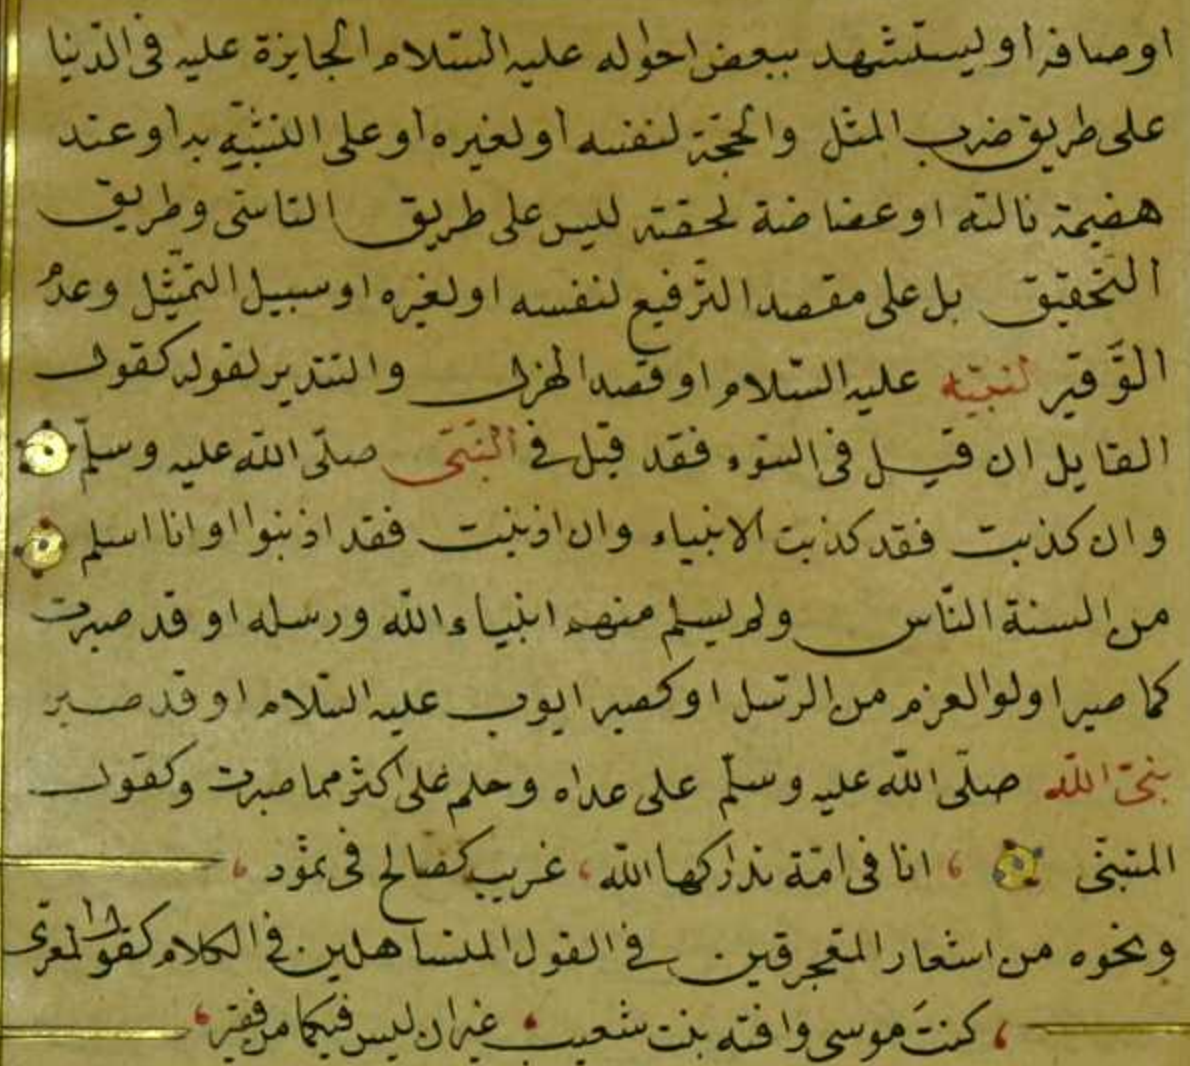 اوصافه او ليستشهد ببعض احواله عليه السّلام الجايزة عليه فى الدّنيا
على طريق ضرب المثل والحجّة لنفسه او لغيره او على التشبّه به او عند
هضيمة نالته او عضاضة لحقته ليس على طريق التاسّى وطريق
التّحقيق بل على مقصد التّرفيع لنفسه او لغيره او سبيل التمثيل وعدم
التّوقير لنبيّه عليه السّلام او قصد الهزل والتنذير لقوله كقول
القايل ان قيل فىّ السّوء فقد قيل فى النّبىّ صلّى الله عليه وسلّم
وان كذبت فقد كذبت الانبياء وان اذنبت فقد اذنبوا او انا اسلم
من السنة النّاس ولم يسلم منهم انبياء الله ورسله او قد صبرت
كما صبر اولوا العزم من الرّسل او كصبر ايوب عليه السّلام او قد صبر
نبىّ الله صلّى الله عليه وسلّم على عداه وحلم على اكثر مما صبرت وكقول
المتنبّى انا فى امّة تداركها الله غريب كصالح فى ثمود
ونحوه من اشعار المتعجرفين فى القول المتساهلين فى الكلام كقول المعرّى
كنتَ موسى وافته بنت شعيب غير ان ليس فيكما من فقير